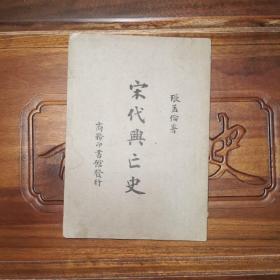 張孟倫著
宋代興亡史
商務印書館發行
史